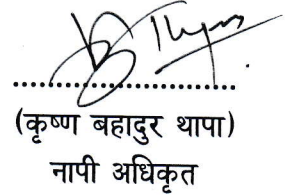 (कृष्ण बहादुर थापा)
नापी अधिकृत